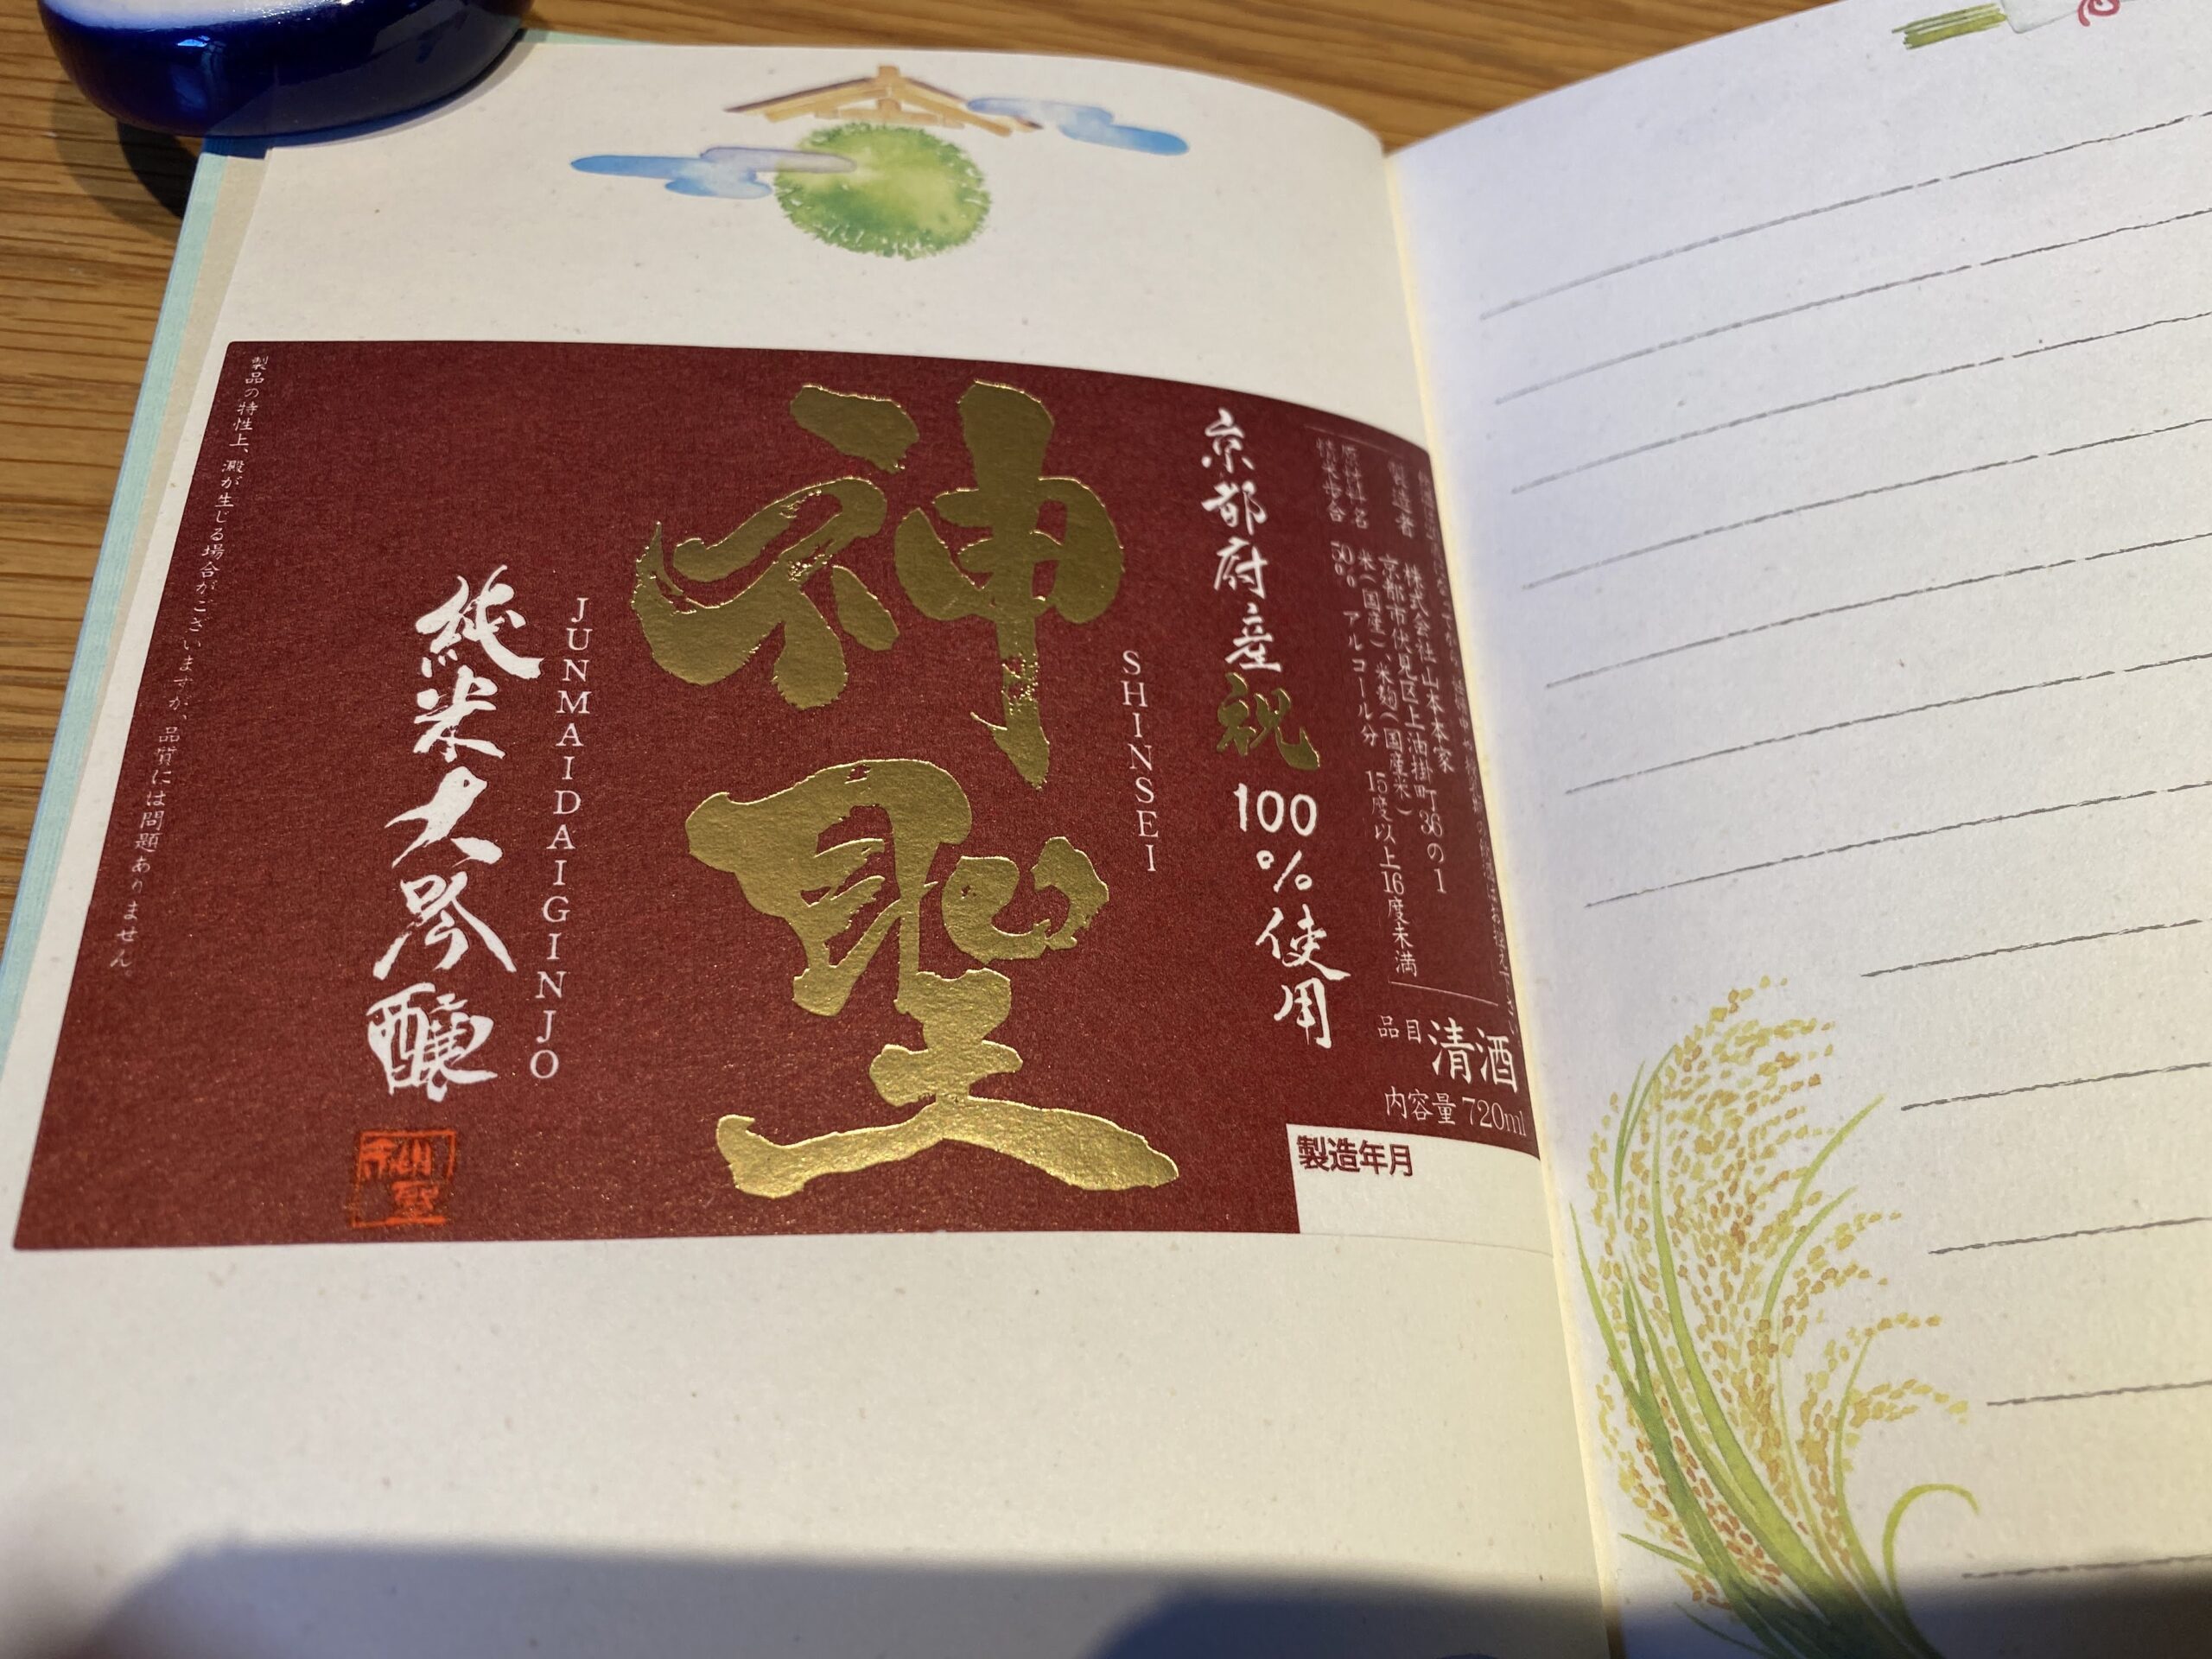 製造者 株式会社山本本家
京都市伏見区上油掛町36の1
原材料名 米(国産)、米麹(国産米)
精米歩合 50% アルコール分 15度以上16度未満
品目 清酒
内容量 720ml
製造年月
京都府産祝100%使用
SHINSEI
神聖
JUNMAI DAIGINJO
純米大吟醸
製品の特性上、澱が生じる場合がございますが、品質には問題ありません。